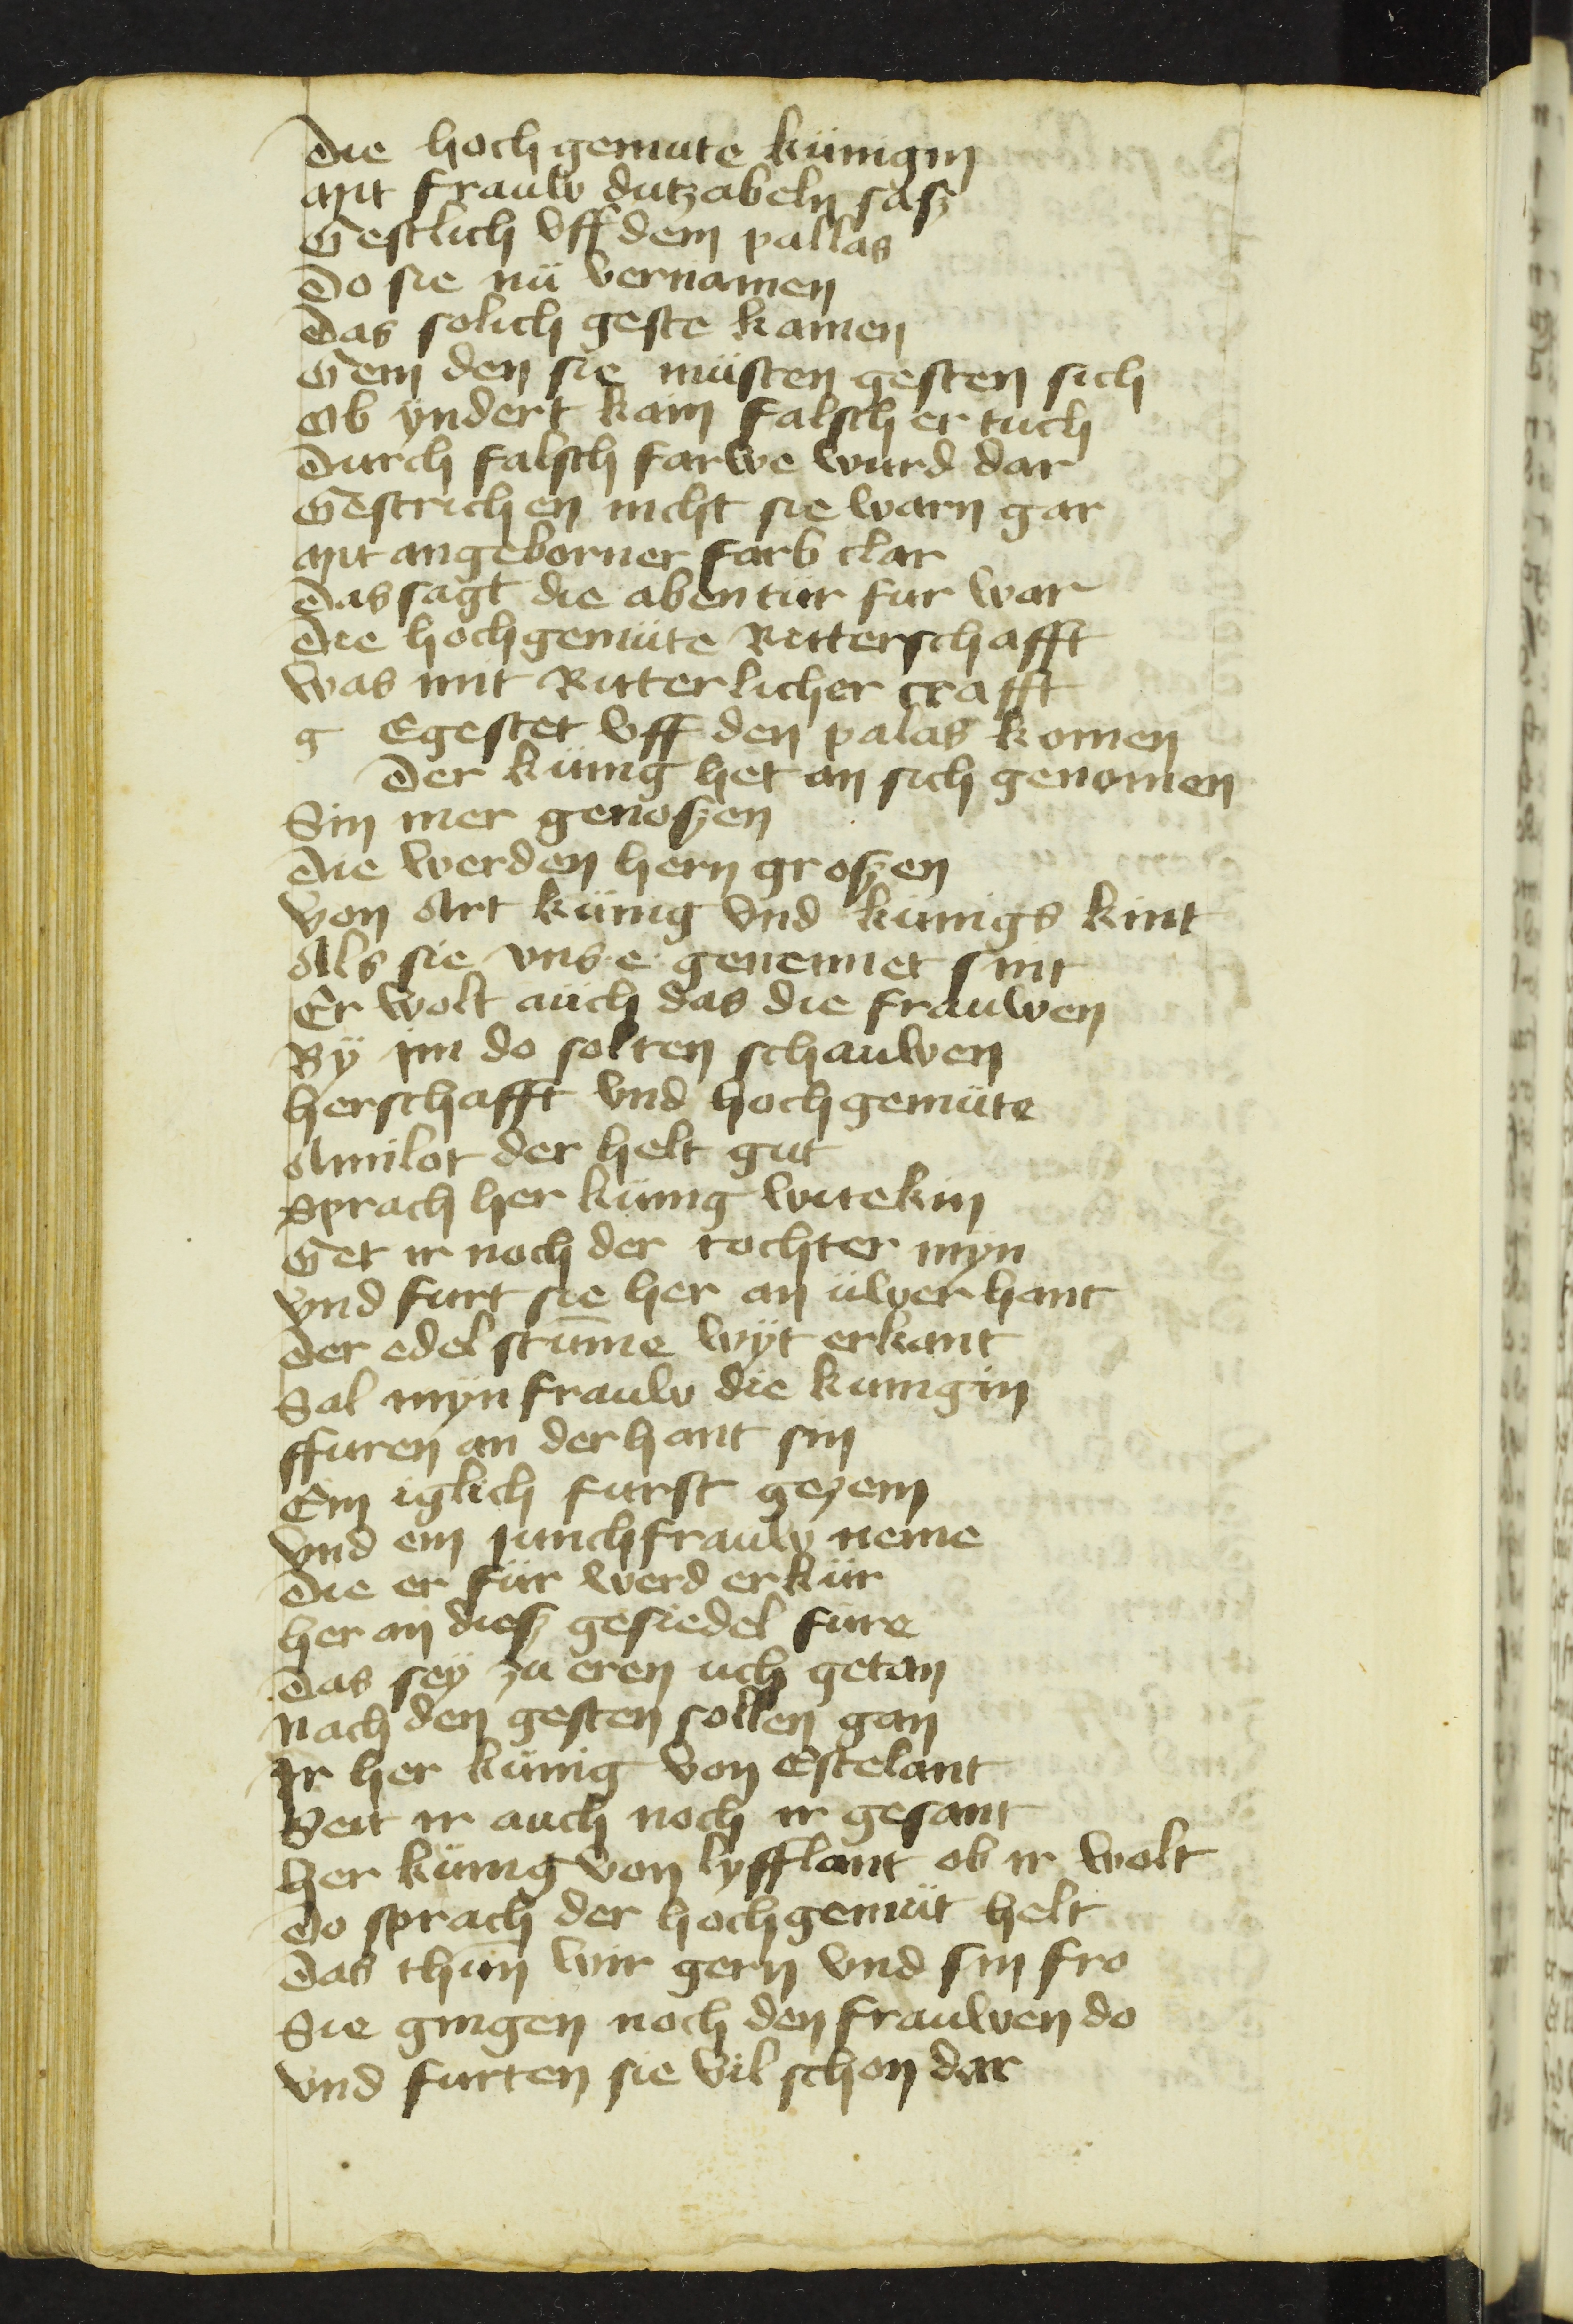 Die hochgemute künigin
Mit frauw dutzabeln sasz
Gestlich vff dem pallas
Do sie nü vernamen
Das solich geste kamen
Gein den sie müsten gesten sich
Ob yndert kain falscher tuch
Durch falsch farwe wurd dar
Gestrichen nicht sie warn gar
Mit angeborner farb clar
Das sagt die abentür fur war
Die hochgemüte Ritterschafft
Was mit Ritterlicher crafft
g Egestet vff den palas komen
Der künig het an sich genomen
Sin mer genoszen
Die werden hern groszen
Von Art künig vnd künigs kint
Als sie vns e genennet sint
Er wolt aüch das die frauwen
By im do solten schauwen
Herschafft vnd hochgemüte
Amilot der helt gut
Sprach her künig witekin
Get ir noch der tochter myn
Vnd furt sie her an üwer hant
Der edel stum̄e wyt erkant
Sal myn frauw die kunigin
ffuren an der hant sin
Ein iglich furst gezem
Vnd ein junchfrauw neme
Die er für werd erkür
Her an diesz gesiedel füre
Das sey zu eren uch getan
Nach den gesten sollen gan
Ir her künig von Estelant
Seit ir auch noch ir gesant
Her künig von lyfflant ob ir wolt
Do sprach der hochgemüt helt
Das thün wir gern vnd sin fro
Sie gingen noch den frauwen do
Vnd furten sie vil schon dar